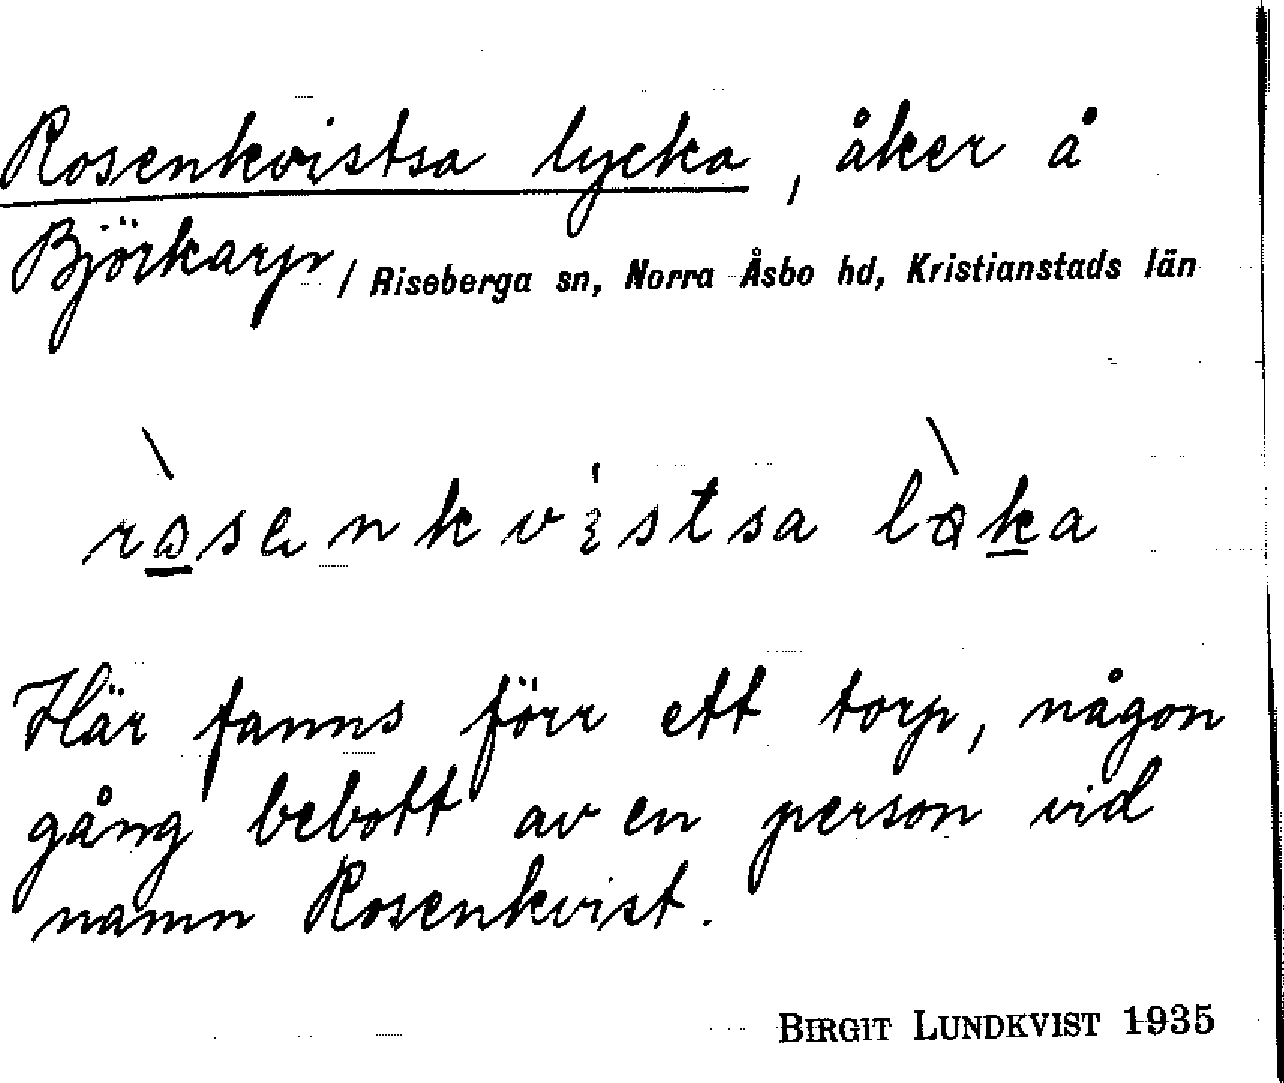 Rosenkvistsa lycka, åker å
Björkarp / Riseberga sn, Norra Åsbo hd, Kristianstads län
Här fanns förr ett torp, någon
gång bebott av en person vid
namn Rosenkvist.
BIRGIT LUNDKVIST 1935